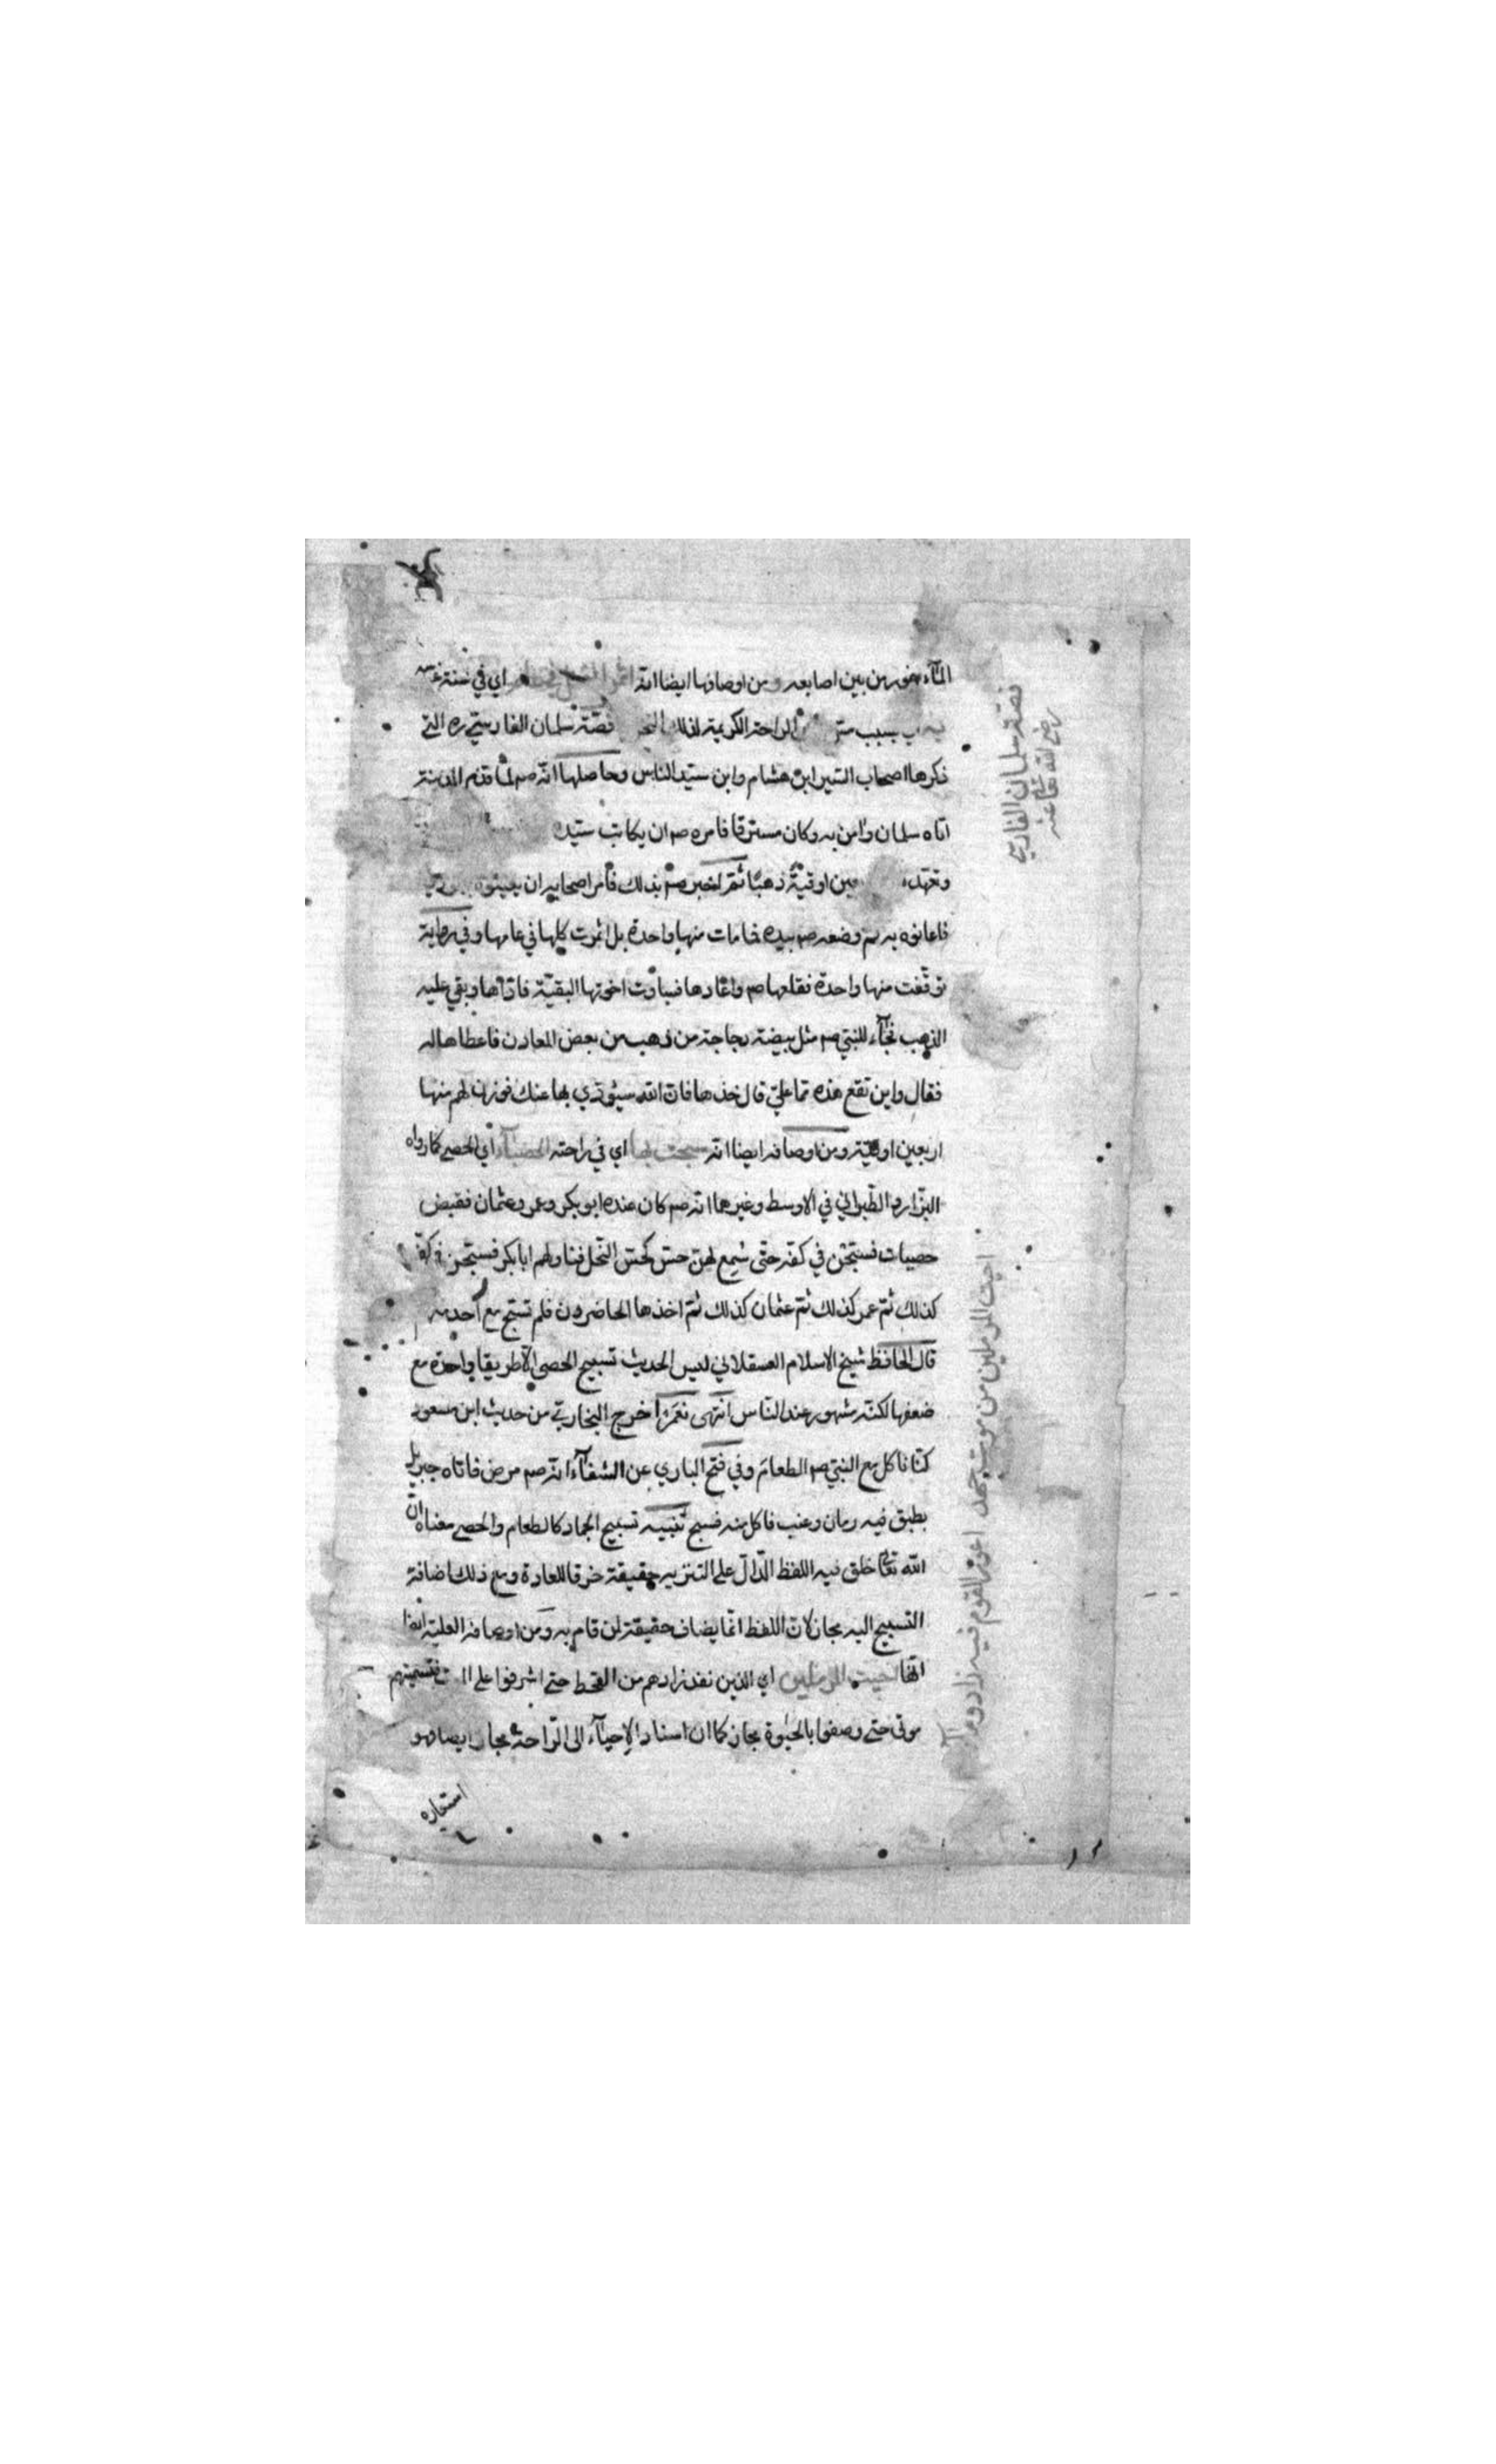 الماء يفور من بين اصابعه ومن اوصافها ايضا انه اثمر النخل في عام اي في سنة غرسه
بسبب الراحة الكريمة لذلك النخل قصّة سلمان الفارسيّ ره التي
ذكرها اصحاب السّير ابن هشام وابن سيّد الناس وحاصلها انّه صم لمّا قدم المدينة
اتاه سلمان وامن به وكان مسترقا فامره صم ان يكاتب سيّده
اوقيّة ذهبًا ثمّ اخبر صم بذلك فأمر اصحابه ان يعينوه
فاعانوه به ثم وضعه صم بيده فما مات منها واحدة بل اثمرت كلها في عامها وفي رواية
توقّفت منها واحدة فقلعها صم واعادها فساوت اخوتها البقيّة فادّاها وبقي عليه
الذهب فجآء للنبيّ صم مثل بيضة دجاجة من ذهب من بعض المعادن فاعطاها له
فقال واين تقع هذه ممّا عليّ قال خذها فانّ الله سيؤدّي بها عنك فوزن لهم منها
اربعين اوقيّة ومن اوصافه ايضا انّه سبحت بها اي في راحته الحصبآء اي الحصى كما رواه
البزّار والطّبراني في الاوسط وغيرهما انّه صم كان عنده ابو بكر وعمر وعثمان فقبض
حصيات فسبّحن في كفّه حتّى سُمِع لهنّ حسّ كحسّ النّحل فناولهم ابا بكر فسبّحن في كفّه
كذلك ثمّ عمر كذلك ثمّ عثمان كذلك ثمّ اخذها الحاضرون فلم تسبّح مع أحد منهم
قال الحافظ شيخ الاسلام العسقلاني ليس لحديث تسبيح الحصى الّا طريقا واحدة مع
ضعفها لكنّه مشهور عند النّاس انتهى نعم اخرج البخاريّ من حديث ابن مسعود
كنّا ناكل مع النبيّ صم الطعام وفي فتح الباري عن الشفآء انّه صم مرض فاتاه جبريل
بطبق فيه رمان وعنب فاكل منه فسبح تنبيه تسبيح الجماد كالطعام والحصى معناه انّ
الله تعا خلق فيه اللفظ الدّالّ على التنزيه حقيقة خرقا للعادة ومع ذلك اضافة
التسبيح اليه مجاز لانّ اللفظ انّما يضاف حقيقة لمن قام به ومن اوصافه العلية ايضا
انّها احيت المرملين اي الذين نفد زادهم من القحط حتى اشرفوا على فتسميتهم
موتى حتى وصفوا بالحيوة مجاز كما ان اسناد الإحيآء الى الرّاحة مجاز ايضا وهو
استعارة
قصّة سلمان الفارسي
رضي الله تعا عنه
احيت المرملين من موت جهد اعوز القوم فيه زاد ومآء